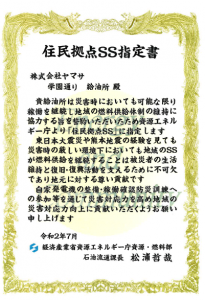 住民拠点SS指定書
株式会社ヤマサ
学園通り　給油所　殿
貴給油所は災害時においても可能な限り
稼働を継続し地域の燃料供給体制の維持に
協力する旨を誓約いただいたため資源エネル
ギー庁より「住民拠点SS」に指定します
東日本大震災や熊本地震の経験を見ても
災害時の厳しい環境下においても地域のSS
が燃料供給を継続することは被災者の生活
維持と復旧・復興活動を支えるために不可欠
であり地元に対する尊い貢献です
自家発電機の整備・稼働確認防災訓練へ
の参加等を通して災害対応力を高め地域の
災害対応能力向上に貢献いただくようお願い
申し上げます
令和2年7月
経済産業省資源エネルギー庁資源・燃料部
石油流通課長　松浦哲哉